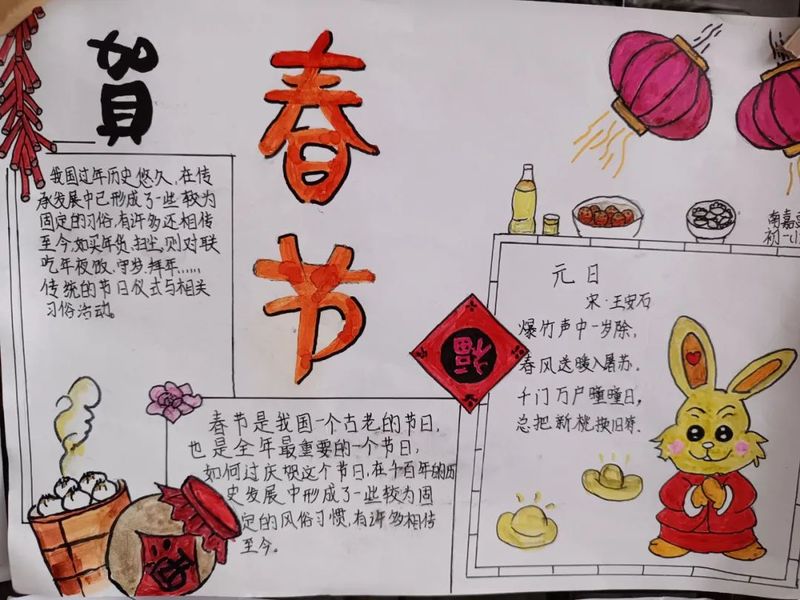 賀
春
节
我国过年历史悠久,在传
承发展中已形成了一些较为
固定的习俗,有许多还相传
至今,如买年货,扫尘,贴对联
吃年夜饭,守岁,拜年……
传统的节日仪式与相关
习俗活动。
南嘉
初一(1
福
元日
宋·王安石
爆竹声中一岁除,
春风送暖入屠苏。
千门万户曈曈日,
总把新桃换旧符.
春节是我国一个古老的节日,
也是全年最重要的一个节日,
如何过庆祝这个节日,在千百年的历
史发展中形成了一些较为固
定的风俗习惯,有许多相传
至今。